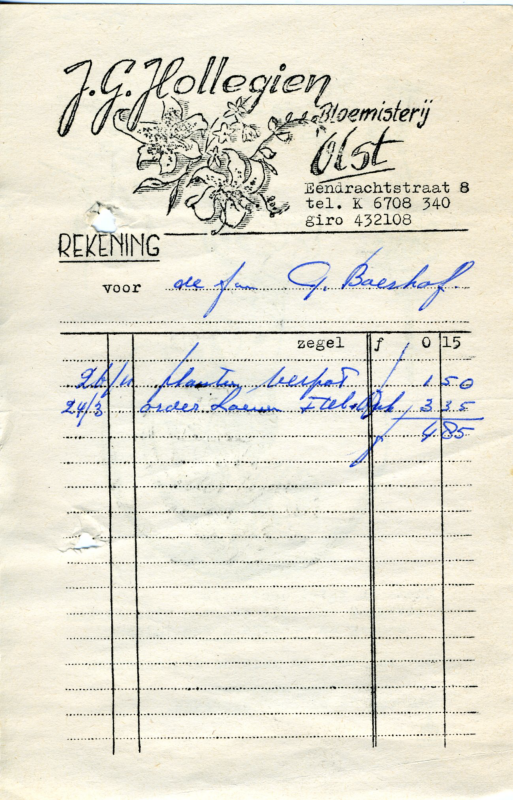 J.G. Hollegien
Bloemisterij
Olst
Eendrachtstraat 8
tel. K 6708 340
giro 432108
REKENING
voor de fam G. Boeshof.
zegel f 0 15
planten verpot 1 50
24/3 order 3 35
f 4.85